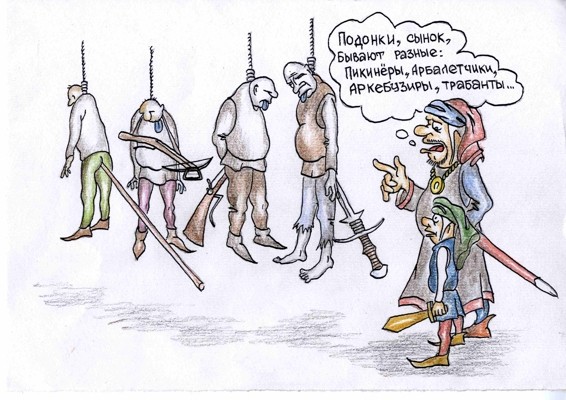 Подонки, сынок,
бывают разные:
Пикинёры, Арбалетчики,
Аркебузиры, трабанты...